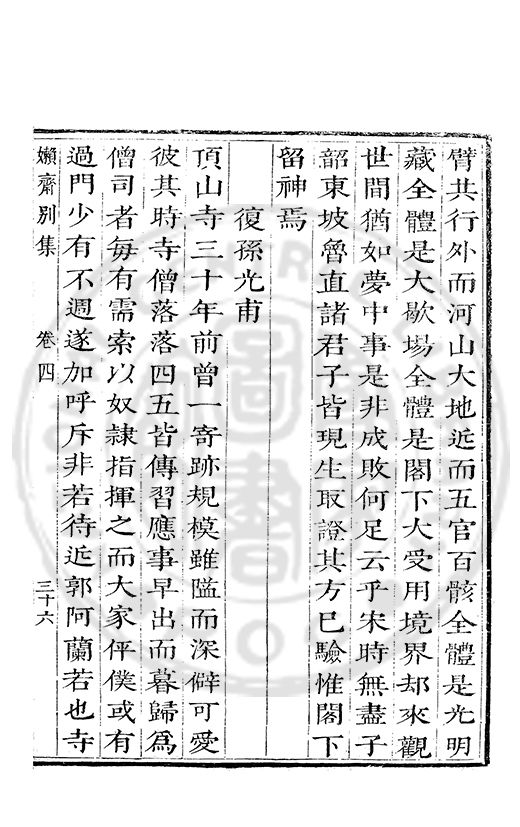 臂共行外而河山大地近而五官百骸全體是光明
藏全體是大歇場全體是閣下大受用境界却來觀
世間猶如夢中事是非成敗何足云乎宋時無盡子
韶東坡魯直諸君子皆現生取證其方已驗惟閣下
留神焉
復孫光甫
頂山寺三十年前曾一寄跡規模雖隘而深僻可愛
彼其時寺僧落落四五皆傳習應事早出而暮歸為
僧司者每有需索以奴隷指揮之而大家伻僕或有
過門少有不週遂加呼斥非若待近郭阿蘭若也寺
嬾齋別集 卷四 三十六